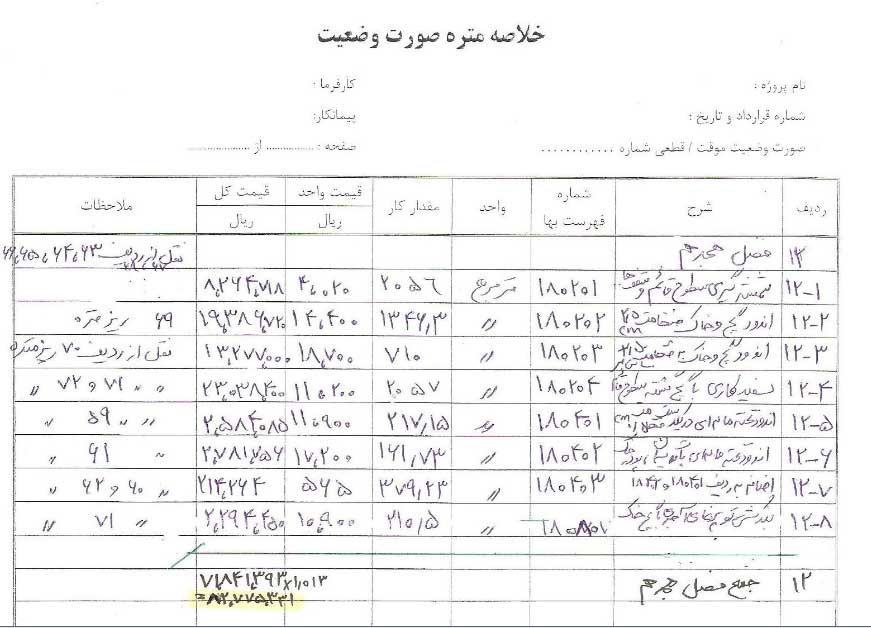 خلاصه متره صورت وضعیت
نام پروژه :
کارفرما :
شماره قرارداد و تاریخ :
پیمانکار:
صورت وضعیت موقت / قطعی شماره ............
صفحه : .............. از ..............
ردیف شرح شماره فهرست بها واحد مقدار کار قیمت واحد ریال قیمت کل ریال ملاحظات
۱۲ فصل هجدهم نقل از ردیف
۱۲-۱ شمشه گیری سطوح قائم و سقفها ۱۸۰۲۰۱ مترمربع ۲۰۵۶ ۴,۰۲۰
۱۲-۲ اندود گچ و خاک به ضخامت ۲.۵ cm ۱۸۰۲۰۲ // ۱۳۴۶,۳ ۱۴,۴۰۰ ۱۹,۳۸۶,۷۲۰ ۶۹ ریز متره
۱۲-۳ اندود گچ و خاک به ضخامت ۱۸۰۲۰۳ // ۷۱۰ ۱۸,۷۰۰ ۱۳,۲۷۷,۰۰۰ نقل از ردیف ۷۰ ریز متره
۱۲-۴ سفیدکاری با گچ کشته سطوح ۱۸۰۲۰۴ // ۲۰۵۷ ۱۱,۲۰۰ ۲۳,۰۳۸,۴۰۰ // // ۷۱ و ۷۲ //
۱۲-۵ ۱۸۰۴۰۱ // ۲۱۷,۱۵ ۱۱,۹۰۰ ۲,۵۸۴,۰۸۵ // // ۵۹ //
۱۲-۶ ۱۸۰۴۰۲ // ۱۶۱,۷۳ ۱۷,۲۰۰ ۲,۷۸۱,۷۵۶ // ۶۱ //
۱۲-۷ اضافه به ردیف ۱۸۰۴۰۱ و ۱۸۰۴۰۲ ۱۸۰۴۰۳ // ۳۷۹,۲۳ ۵۶۵ ۲۱۴,۲۶۴ // ۶۰ و ۶۲ //
۱۲-۸ // ۲۱۰,۵ ۱۰,۹۰۰ ۲,۲۹۴,۴۵۰ // ۷۱ //
۱۲ جمع فصل هجدهم ۷۱,۸۴۱,۳۹۳
=۸۲,۷۷۵,۳۳۱